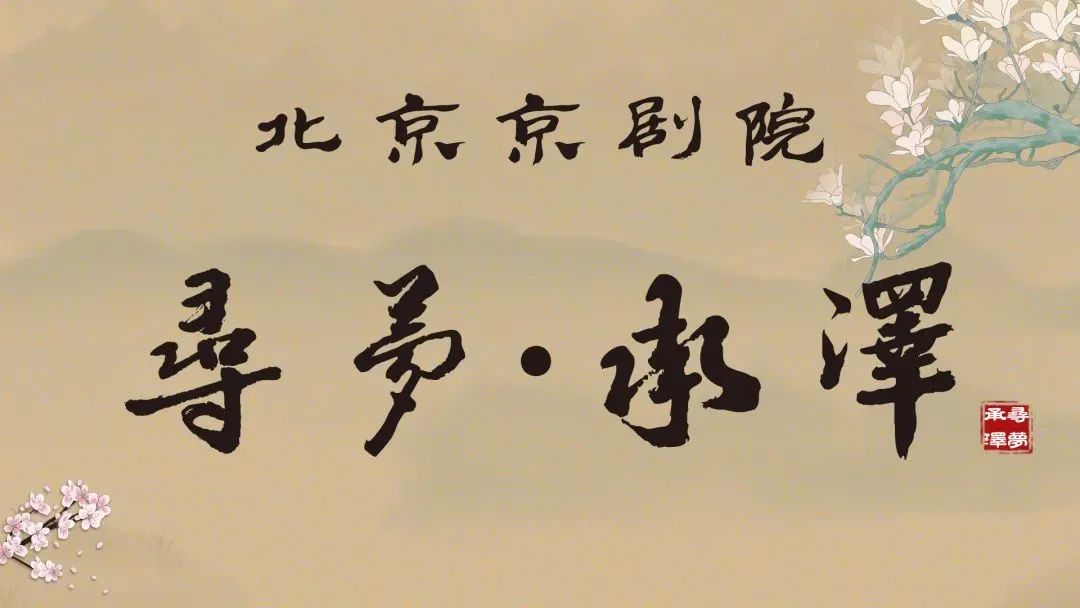 北京京剧院
尋夢·承澤
尋夢
承澤